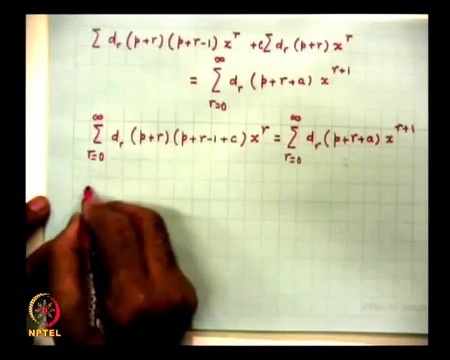 Σ d_r (p+r) (p+r-1) x^r + c Σ d_r (p+r) x^r
= Σ_{r=0}^{∞} d_r (p+r+a) x^{r+1}
Σ_{r=0}^{∞} d_r (p+r) (p+r-1+c) x^r = Σ_{r=0}^{∞} d_r (p+r+a) x^{r+1}
NPTEL